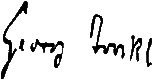 Georg Trakl